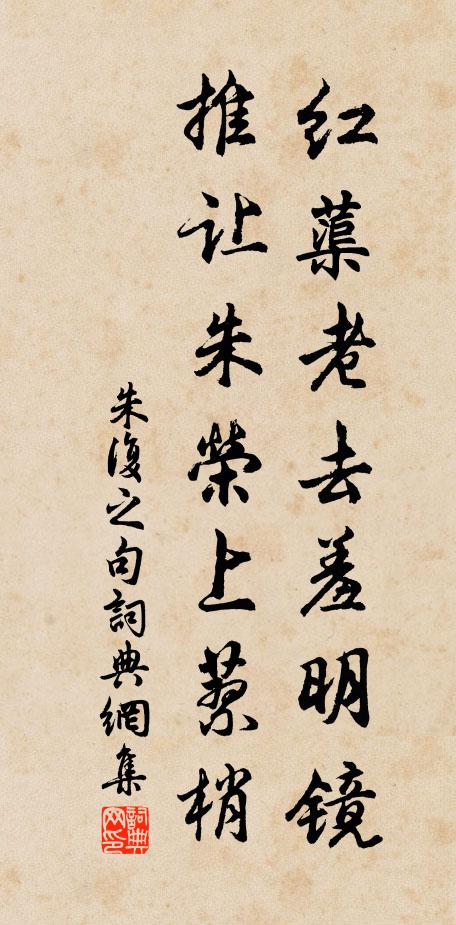 红蕖老去羞明镜
推让朱荣上蓼梢
朱復之句詞典網集
詞典网印